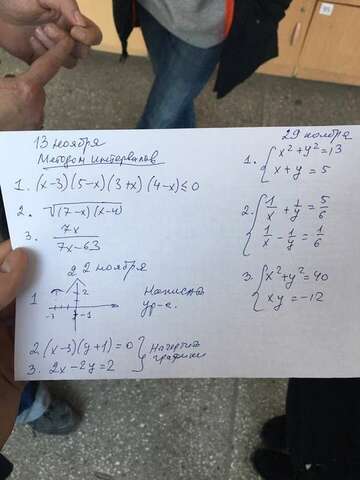 13 ноября
Методом интервалов
1. (x-3)(5-x)(3+x)(4-x)≤0
2. √(7-x)(x-4)
3. 7x/(7x-63)
22 ноября
1
2
-3
-1
Написать
ур-е.
2. (x-3)(y+1)=0
3. 2x-2y=2
Начертить
графики
29 ноября
1. { x²+y²=13
x+y=5
2. { 1/x+1/y=5/6
1/x-1/y=1/6
3. { x²+y²=40
xy=-12